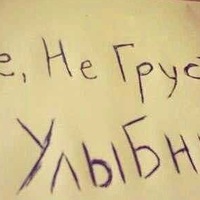 е, Не Грус
Улыбн